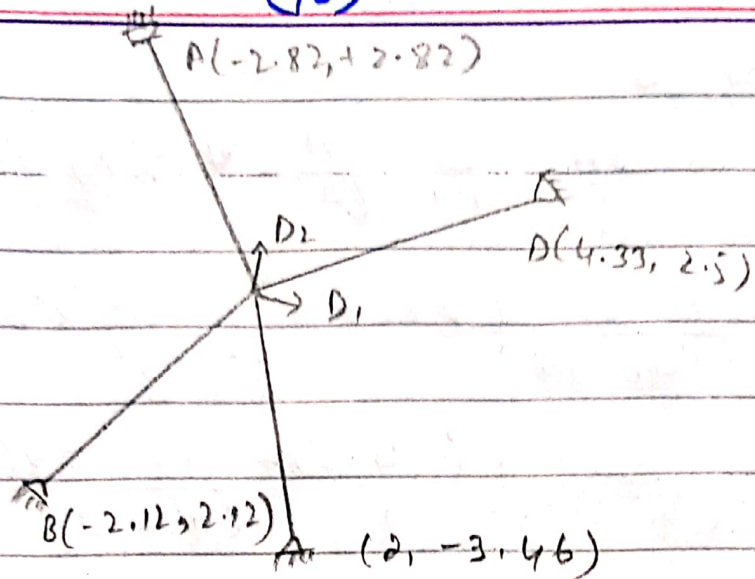 A(-2.82, +2.82)
D2
D(4.33, 2.5)
D1
B(-2.12, 2.12)
(2, -3.46)